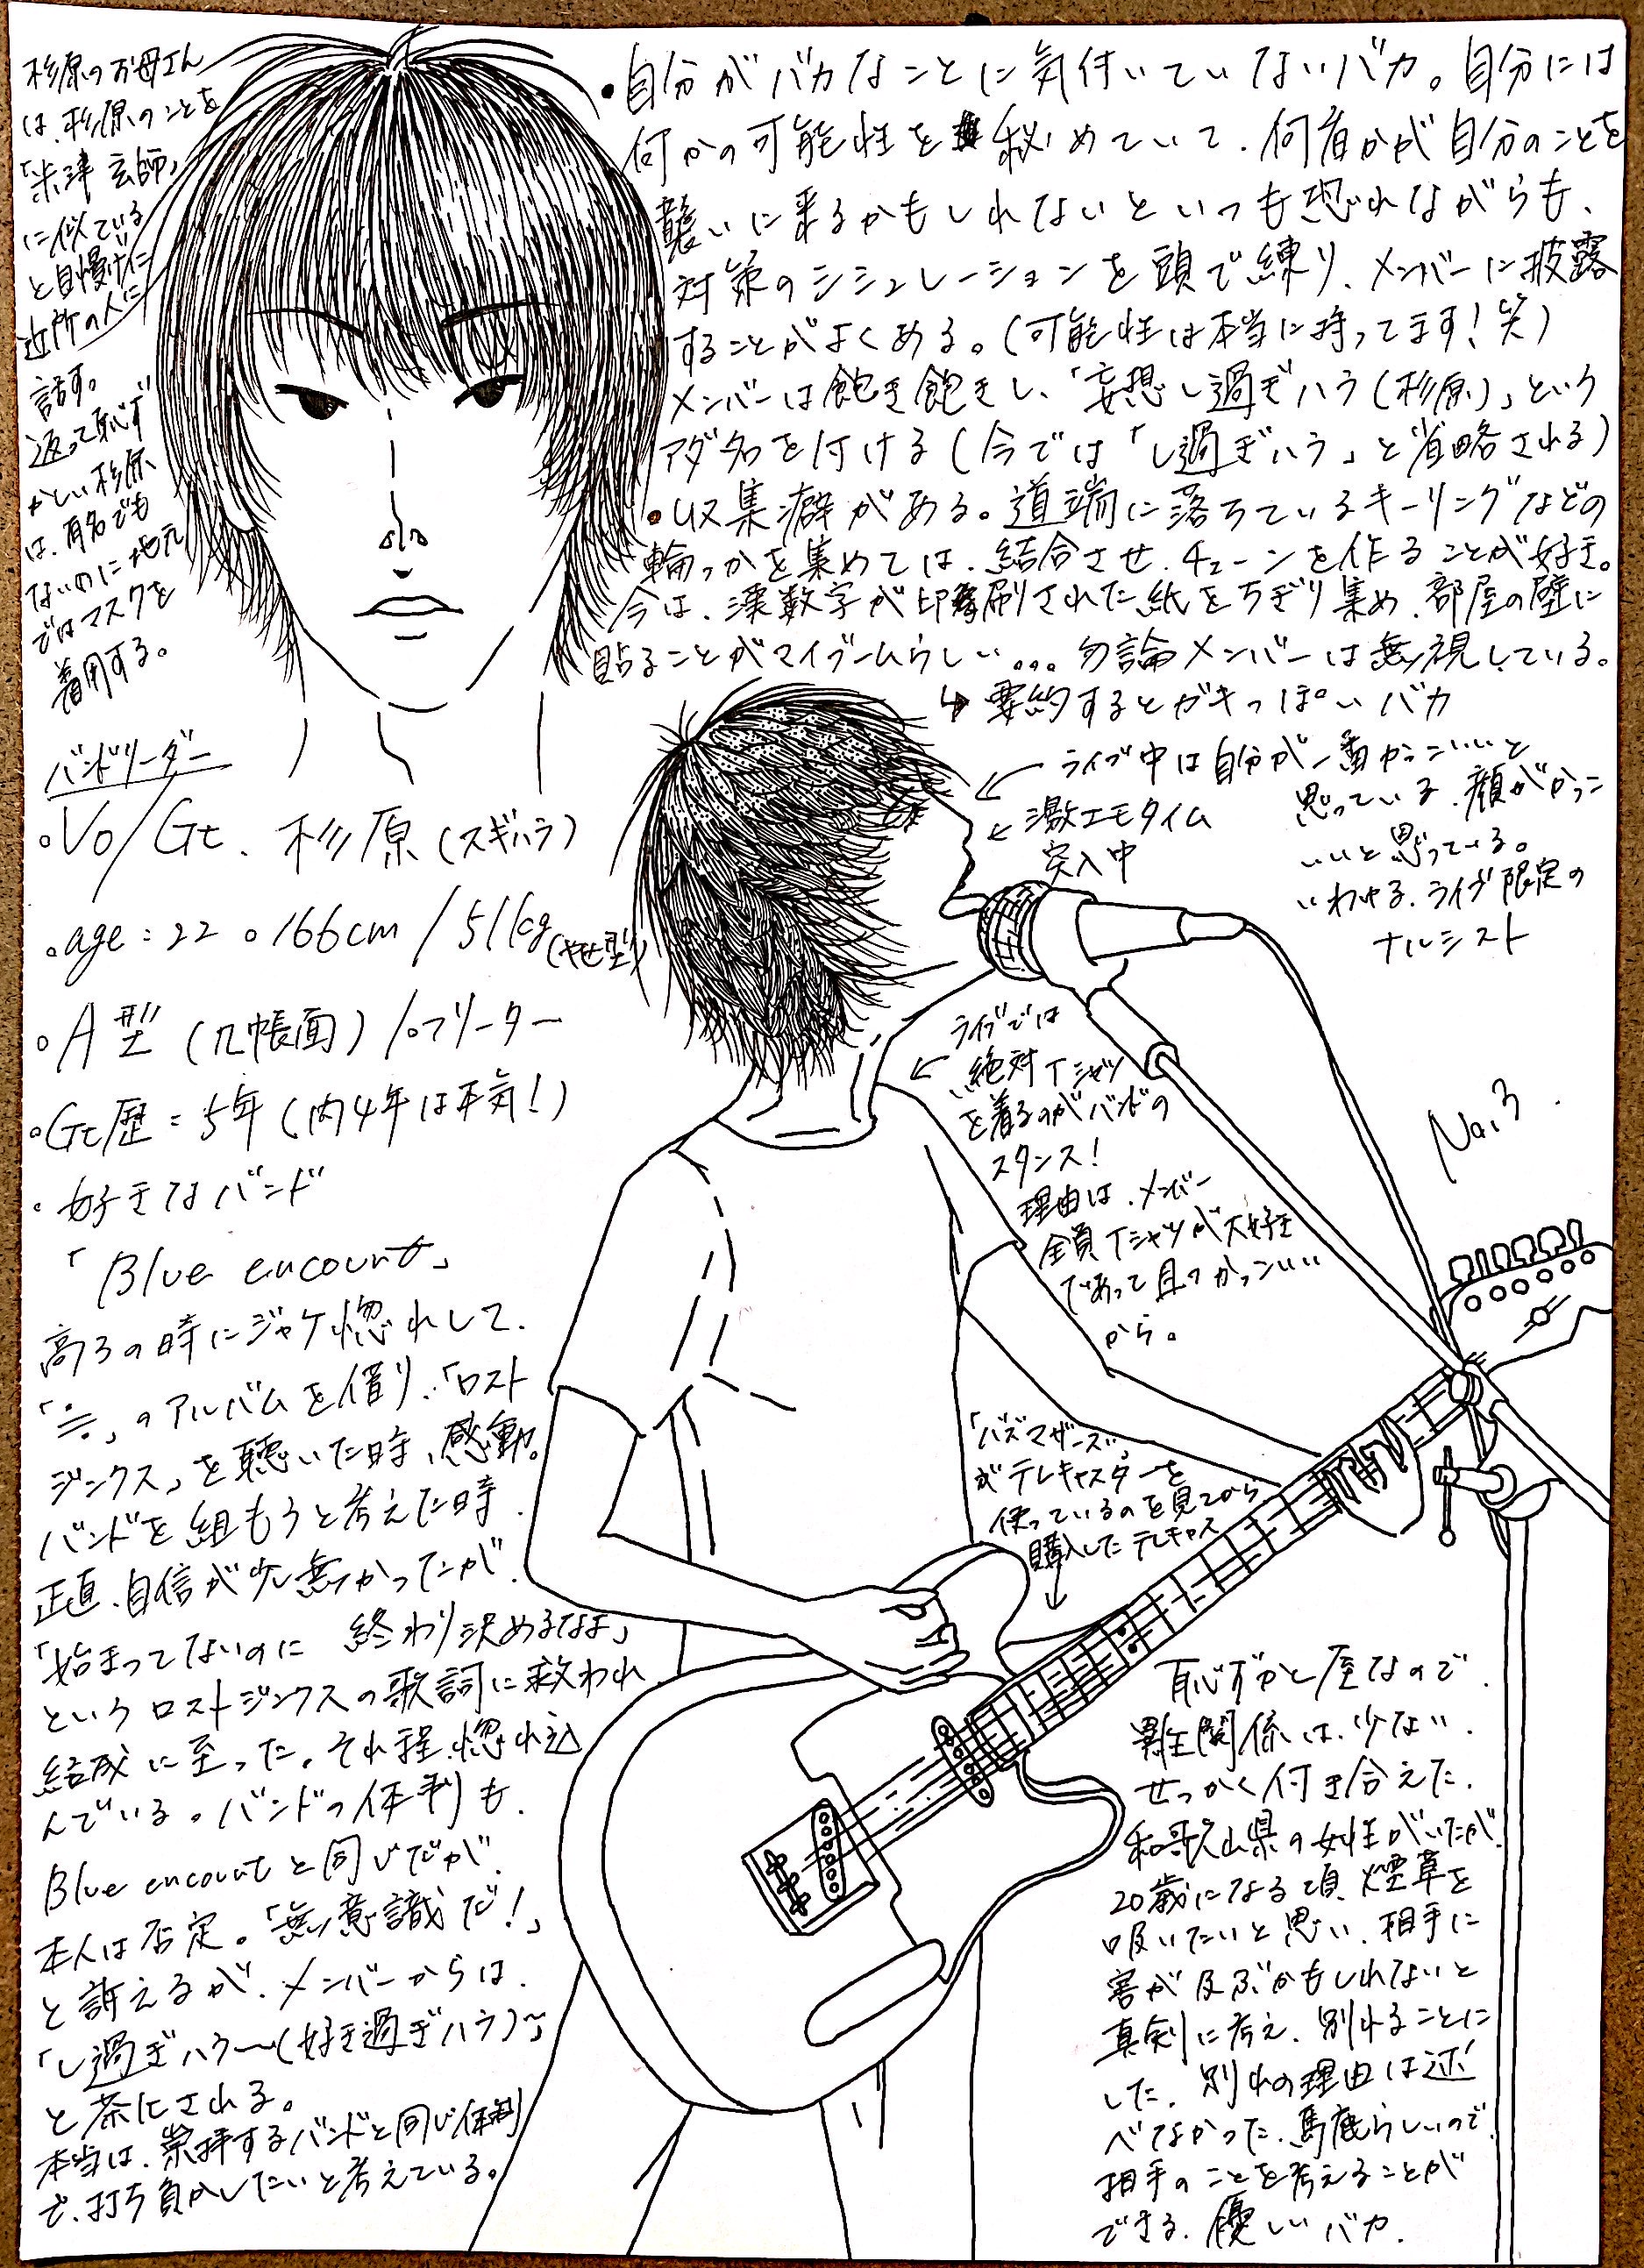 杉原のお母さん
は、杉原のことを
「米津玄師」
に似ている
と自慢げに
近所の人に
話す。
返って恥ず
かしい杉原
は、有名でも
ないのに地元
ではマスクを
着用する。
・自分がバカなことに気付いていないバカ。自分には
何かの可能性を秘めていて、何者かが自分のことを
襲いに来るかもしれないといつも恐れながらも、
対策のシミュレーションを頭で練り、メンバーに披露
することがよくある。(可能性は本当に持ってます!笑)
メンバーは飽き飽きし、「妄想し過ぎハラ(杉原)」という
アダ名を付ける(今では「し過ぎハラ」と省略される)
・収集癖がある。道端に落ちているキーリングなどの
輪っかを集めては、結合させ、チェーンを作ることが好き。
今は、漢数字が印刷された紙をちぎり集め、部屋の壁に
貼ることがマイブームらしい...勿論メンバーは無視している。
↳要約するとガキっぽいバカ
バンドリーダー
・Vo/Gt、杉原(スギハラ)
・age:22 。166cm/51kg(やせ型)
・A型(几帳面)/。フリーター
・Gt歴=5年(内4年は本気!)
・好きなバンド
「Blue encount」
高3の時にジャケ惚れして、
「≒」のアルバムを借り、「ロスト
ジンクス」を聴いた時、感動。
バンドを組もうと考えた時、
正直、自信が少し無かったが、
「始まってないのに 終わり決めるなよ」
というロストジンクスの歌詞に救われ
結成に至った。それ程、惚れ込
んでいる。バンドの体制も、
Blue encountと同じだが、
本人は否定。「無意識だ!」
と訴えるが、メンバーからは、
「し過ぎハラ〜(好き過ぎハラ)〜」
と茶化される。
本当は、崇拝するバンドと同じ体制
で、打ち負かしたいと考えている。
←ライブ中は自分が一番かっこいいと
思っている、顔がかっこ
いいと思っている。
いわゆる、ライブ限定の
ナルシスト
←激エモタイム
突入中
←ライブでは
絶対Tシャツ
を着るのがバンドの
スタンス!
理由は、メンバー
全員Tシャツが大好き
であって且つかっこいい
から。
No.3.
「バズマザーズ」
がテレキャスターを
使っているのを見てから
購入したテレキャス
恥ずかし屋なので、
異性関係は、少ない、
せっかく付き合えた、
和歌山県の女性がいたが、
20歳になる頃、煙草を
吸いたいと思い、相手に
害が及ぶかもしれないと
真剣に考え、別れることに
した、別れの理由は述
べなかった、馬鹿らしいので
相手のことを考えることが
できる、優しいバカ.